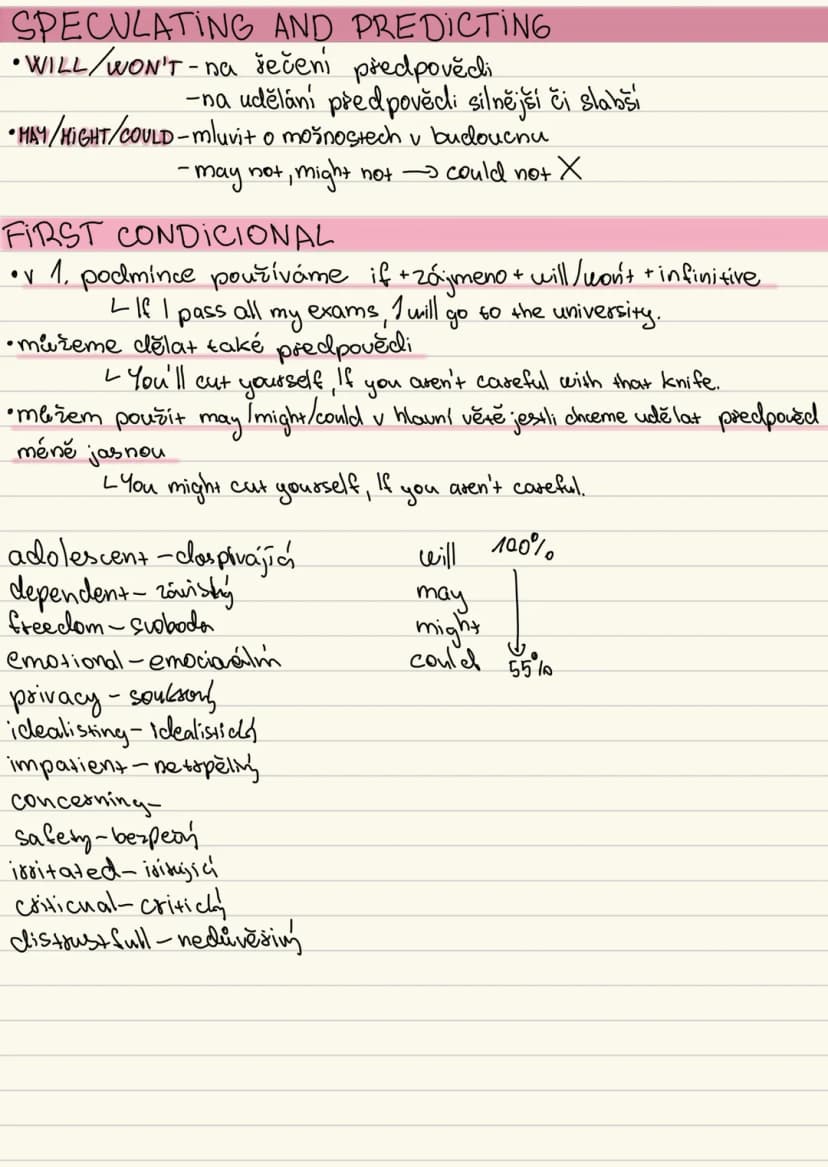 SPECULATING AND PREDICTING
• WILL/WON'T - na řečení předpovědi
- na udělání předpovědi silnější či slabší
• MAY/MIGHT/COULD - mluvit o možnostech v budoucnu
- may not, might not → could not X
FIRST CONDICIONAL
• v 1. podmínce používáme if + zájmeno + will/won't + infinitive
↳ If I pass all my exams, I will go to the university.
• můžeme dělat také předpovědi
↳ You'll cut yourself, If you aren't careful with that knife.
• můžem použít may/might/could v hlavní větě jestli chceme udělat předpověd
méně jasnou
↳ You might cut yourself, If you aren't careful.
adolescent - dospívající
will 100%
dependent - závislý
may
freedom - svoboda
might
emotional - emocionální
could 55%
privacy - soukromý
idealisting - idealistický
impatient - netrpělivý
concerning -
safety - bezpečný
irritated - iritující
criticual - critický
distrustfull - nedůvěřivý